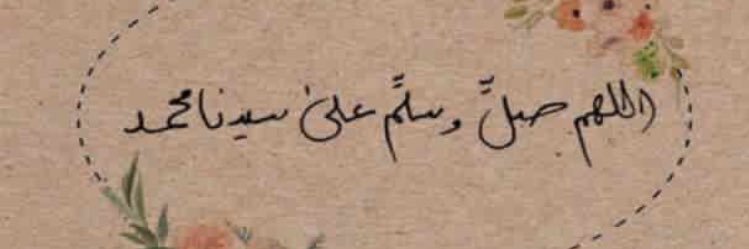 اللهم صلَّ وسلَّم على سيدنا محمد